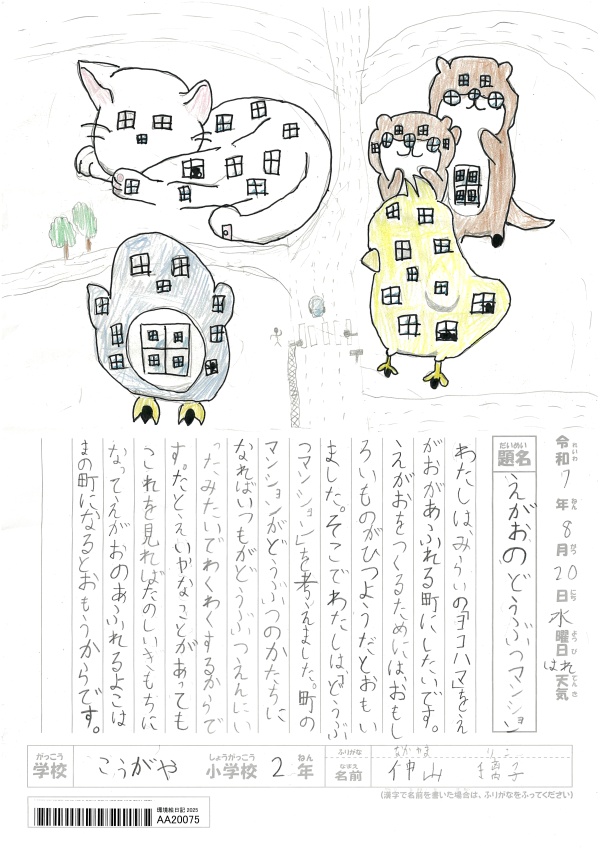 令和7年8月20日水曜日はれ天気
れいわ ねん がつ にち ようび てんき
だいめい
題名
えがおのどうぶつマンション
わたしは、みらいの「ヨコハマ」をえ
がおがあふれる町にしたいです。
えがおをつくるためには、おもし
ろいものがひつようだとおもい
ました。そこでわたしは、「どうぶ
つマンション」を考えました。町の
マンションがどうぶつのかたちに
なればいつもがどうぶつえんにい
ったみたいでわくわくするからで
す。たとえいやなことがあっても
これを見ればたのしいきもちに
なってえがおのあふれるよこは
まの町になるとおもうからです。
がっこう しょうがっこう ねん
学校 こうがや 小学校 2年
ふりがな なかやま りこ
なまえ
名前 仲山 璃子
(漢字で名前を書いた場合は、ふりがなをふってください)
環境絵日記 2025
AA20075